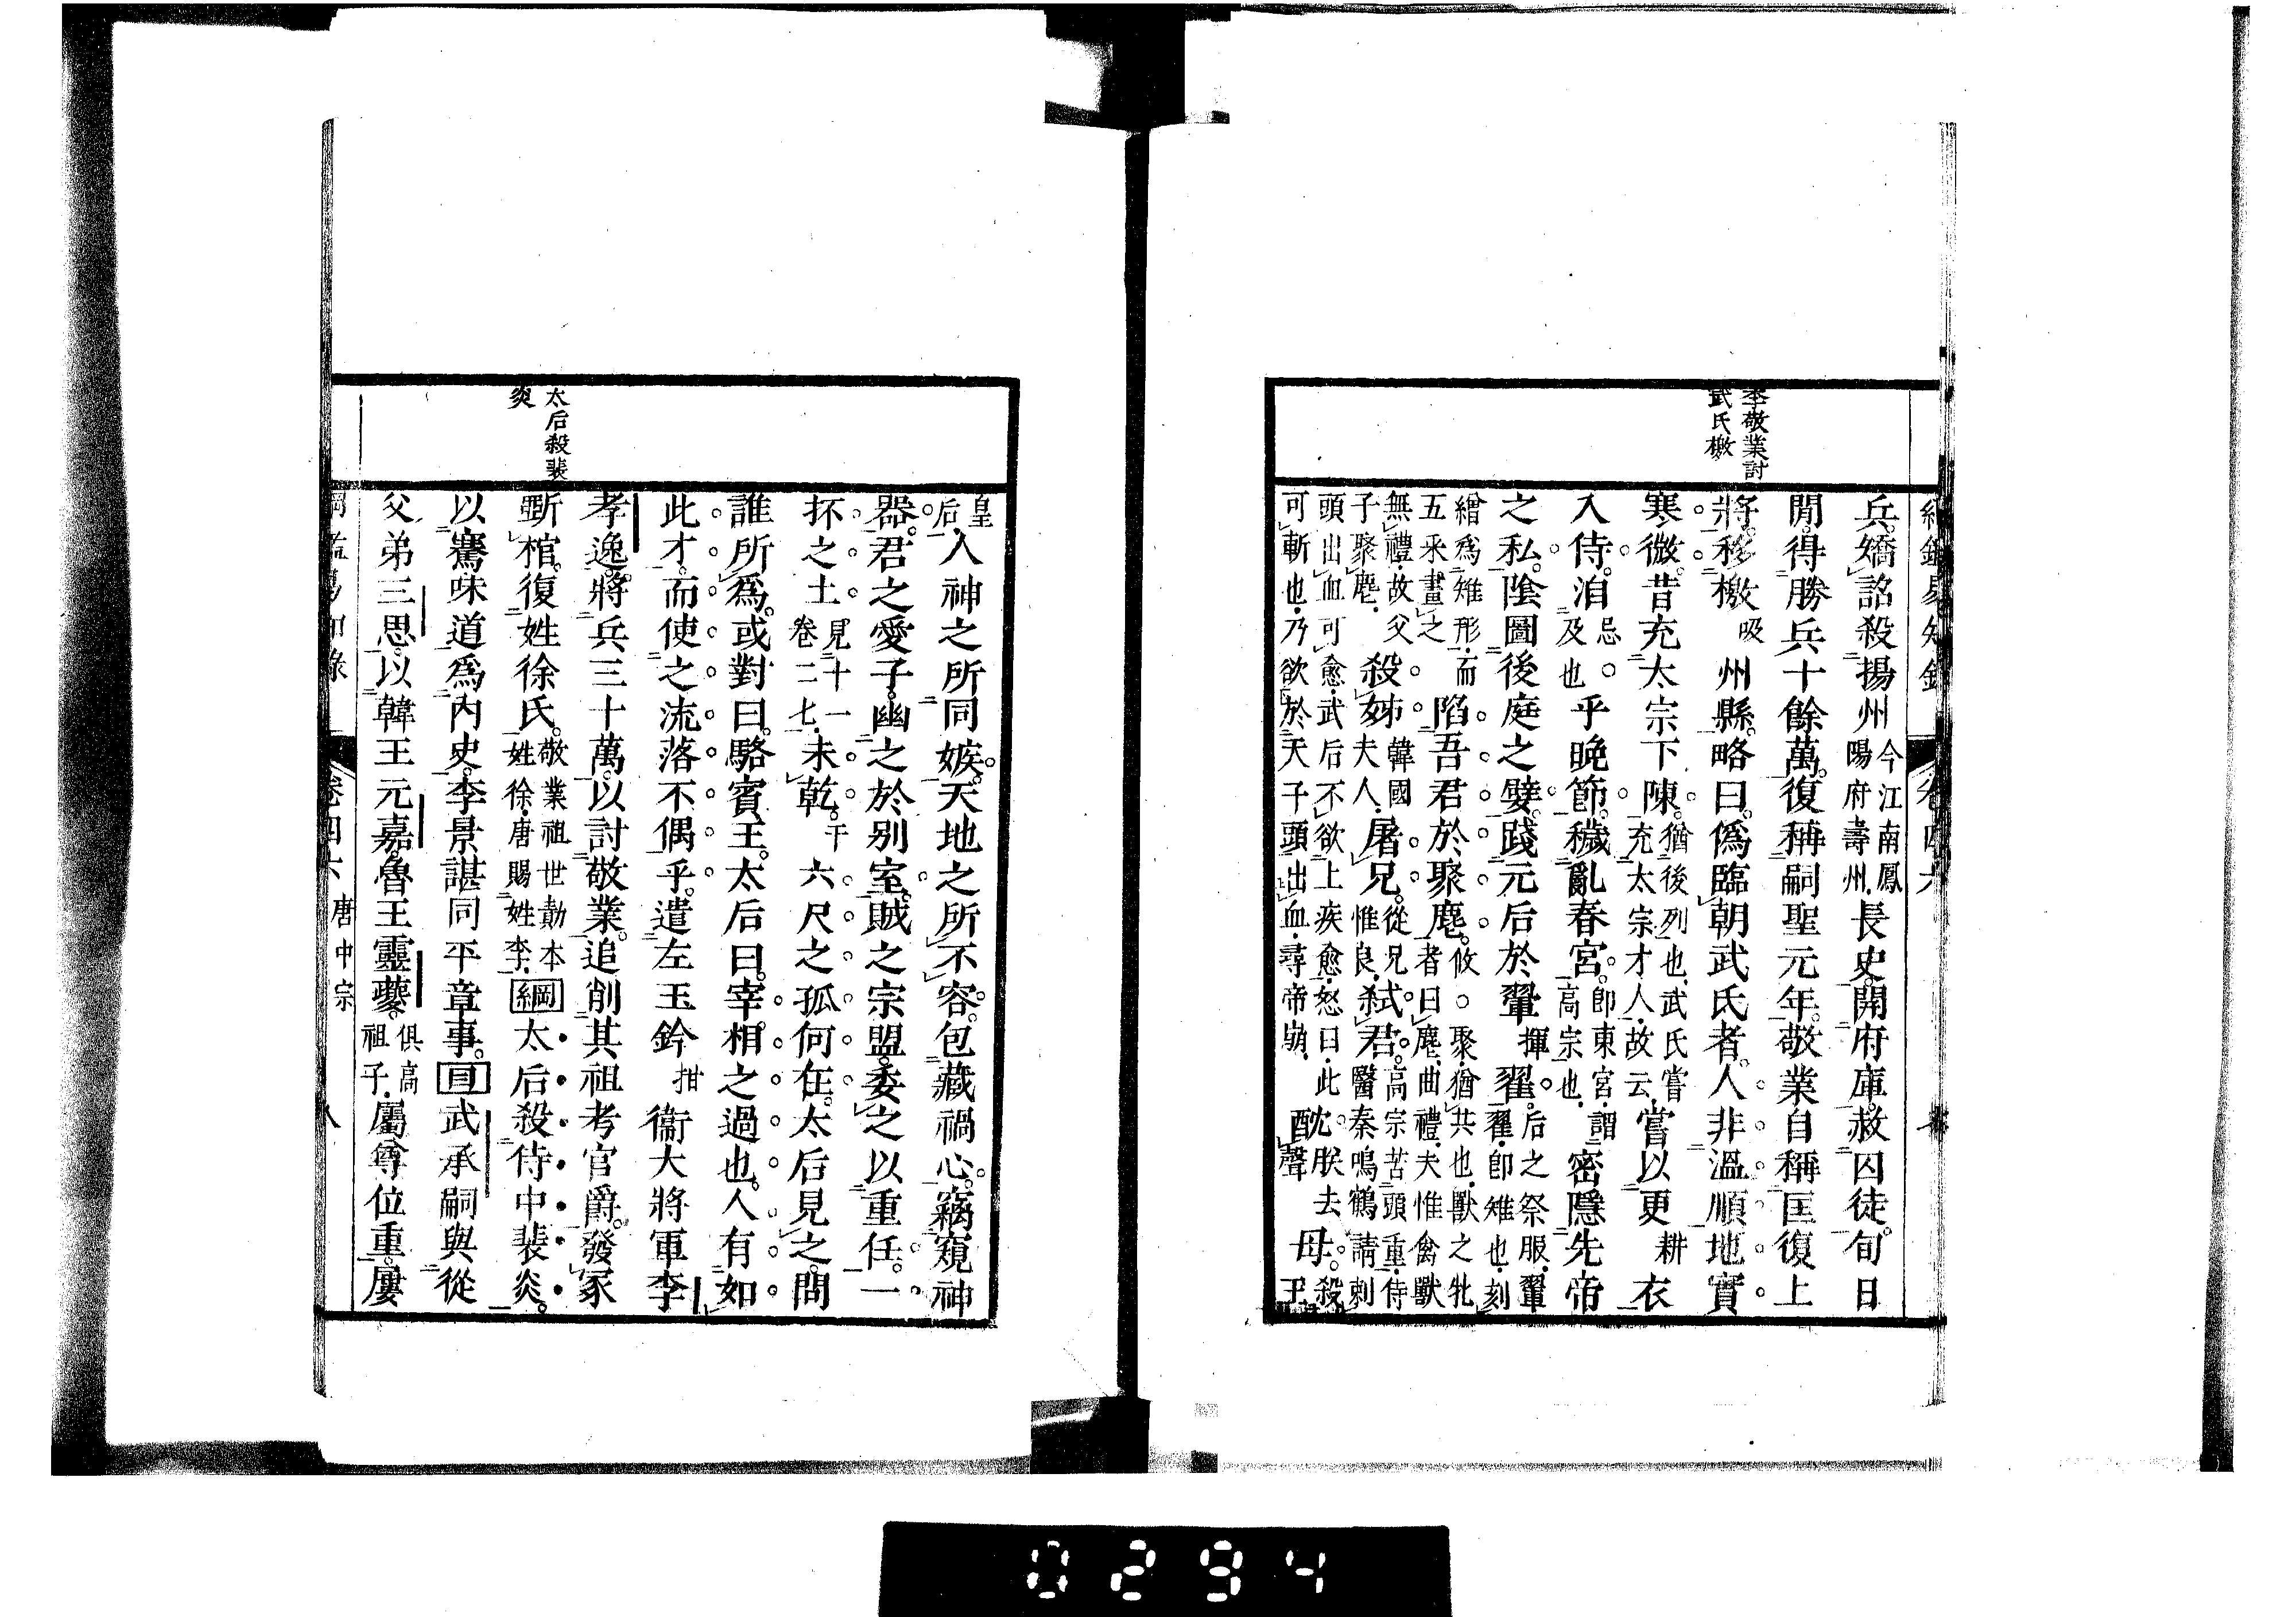 李敬業討
武氏檄
兵。矯詔殺揚州今江南鳳陽府壽州。長史。開府庫。赦囚徒。旬日
閒。得勝兵十餘萬。復稱嗣聖元年。敬業自稱匡復上
將。移檄吸州縣。略曰。偽臨朝武氏者。人非溫順。地實
寒微。昔充太宗下陳。猶後列也。武氏嘗充太宗才人。故云。嘗以更耕衣
入侍。洎忌。及也乎晚節。穢亂春宮。即東宮。謂高宗也。密隱先帝
之私。陰圖後庭之嬖。踐元后於翬揮翟。后之祭服。翬翟。即雉也。刻
繒為雉形。而五采畫之陷吾君於聚麀。攸。聚。猶共也。獸之牝者曰麀。曲禮。夫惟禽獸
無禮。故父子聚麀。殺姊韓國夫人。屠兄。從兄惟良。弒君。高宗苦頭重。侍醫秦鳴鶴請刺
頭出血可愈。武后不欲上疾愈。怒曰。此可斬也。乃欲於天子頭出血。尋帝崩。酖沈朕去聲母。殺王
皇后。人神之所同嫉。天地之所不容。包藏禍心。竊窺神
器。君之愛子。幽之於別室。賊之宗盟。委之以重任。一
抔之土見十一卷二七。未乾。干六尺之孤何在。太后見之。問
誰所為。或對曰。駱賓王。太后曰。宰相之過也。人有如
此才。而使之流落不偶乎。遣左玉鈐拑衞大將軍李
孝逸。將兵三十萬。以討敬業。追削其祖考官爵。發冢
斲棺。復姓徐氏。敬業祖世勣本姓徐。唐賜姓李。綱太后殺侍中裴炎。
以騫味道為內史。李景諶同平章事。目武承嗣與從
父弟三思。以韓王元嘉。魯王靈夔。俱高祖子。屬尊位重。屢
太后殺裴
炎
卷四六
唐中宗
八
0294